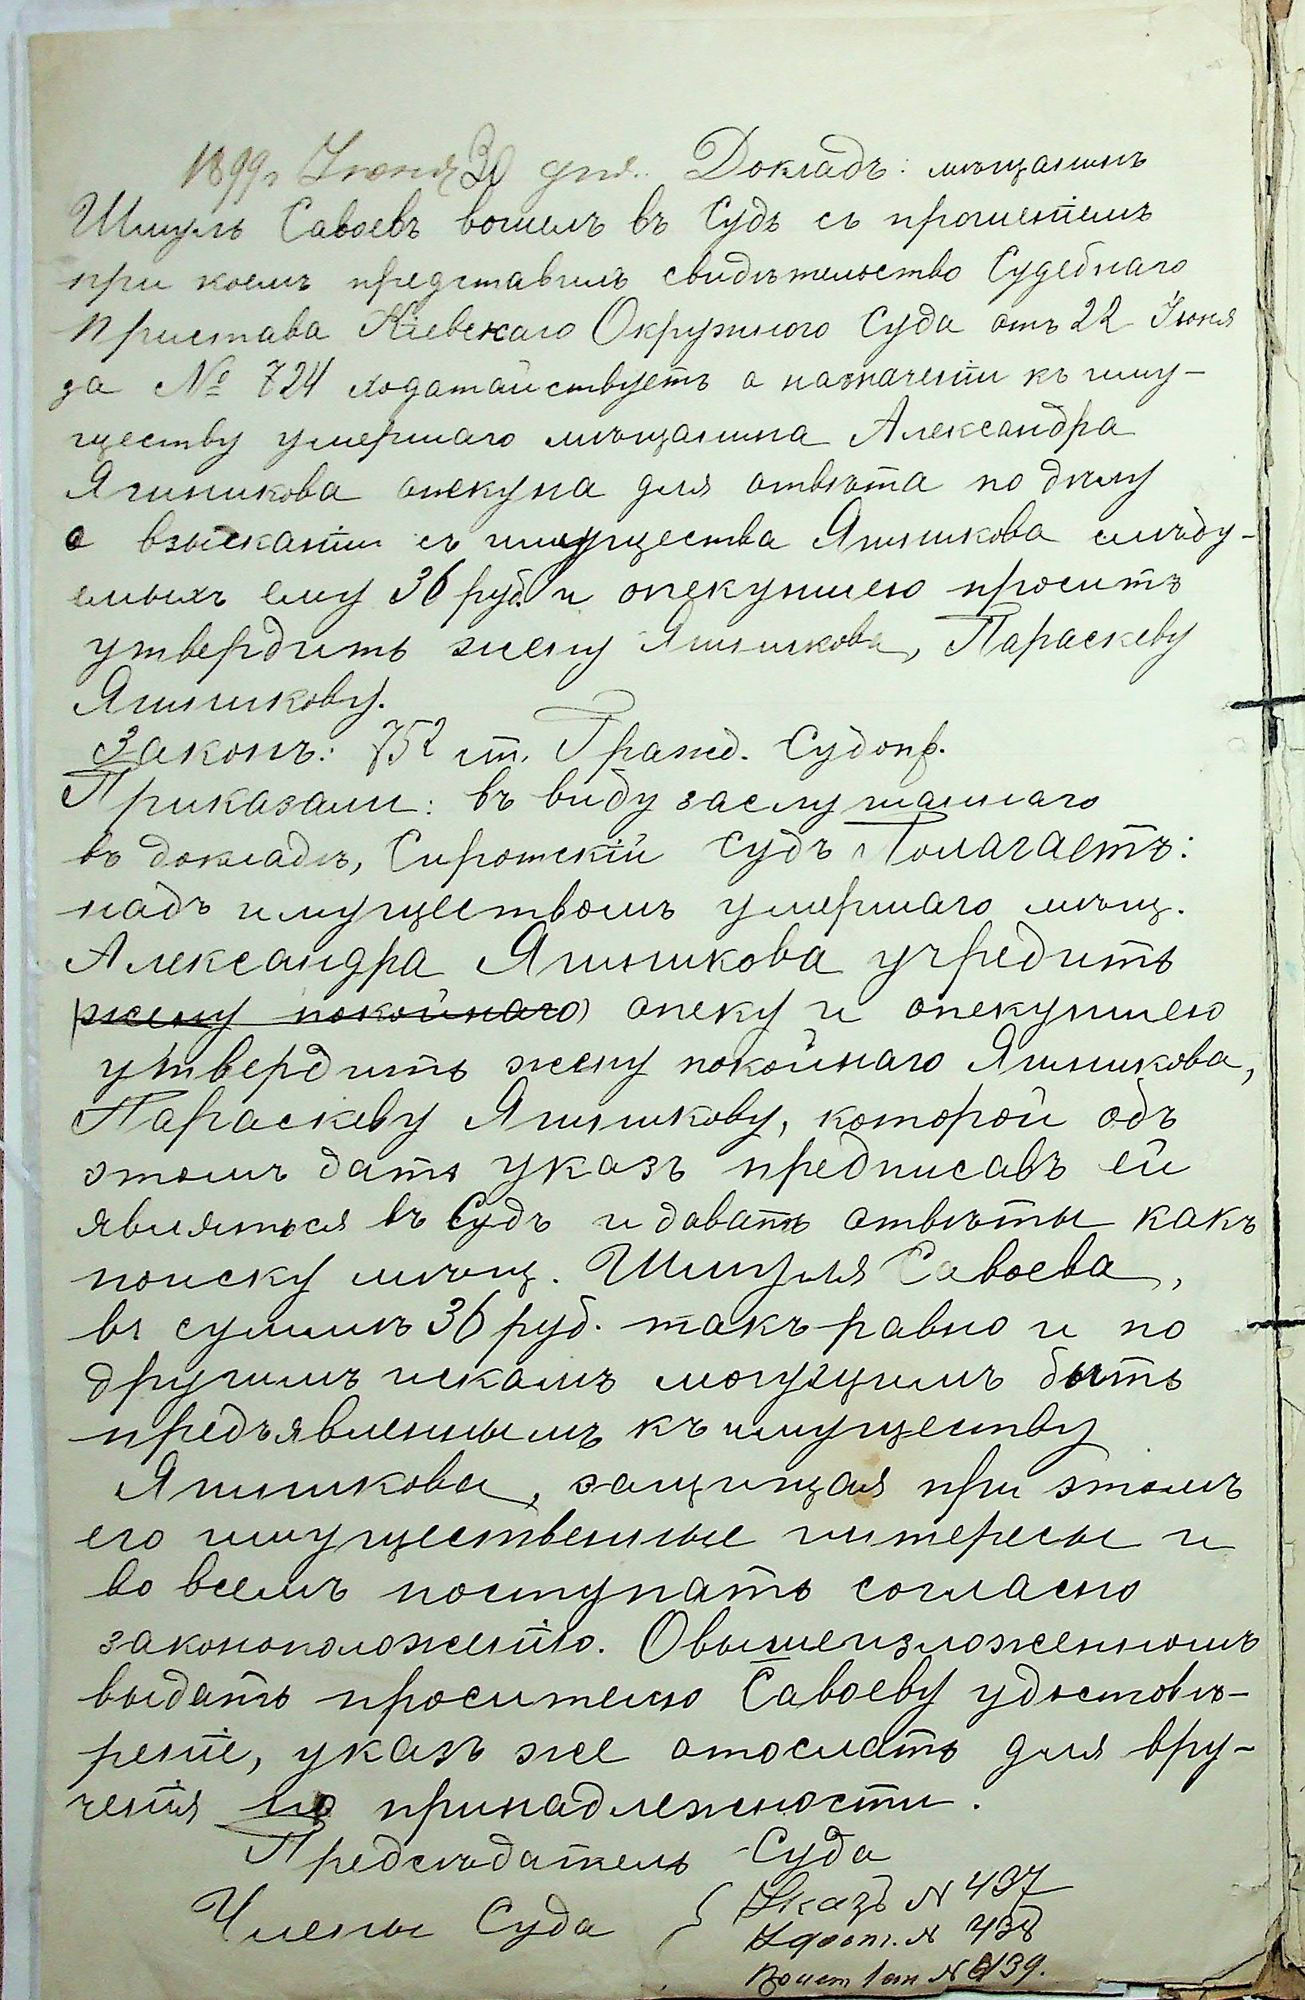 1899 г. Іюня 30 дня. Докладъ: мѣщанинъ
Шмуль Савоевъ вошелъ въ Судъ съ прошеніемъ
при коемъ представилъ свидѣтельство Судебнаго
Пристава Кіевскаго Окружного Суда отъ 22 Іюня
за № 724 ходатайствуетъ о назначеніи къ иму-
ществу умершаго мѣщанина Александра
Яшникова опекуна для отвѣта по дѣлу
о взысканіи съ имущества Яшникова слѣду-
емыхъ ему 36 руб. и опекуншею проситъ
утвердить жену Яшникова, Параскеву
Яшникову.
Законъ: 752 ст. Гражд. Судопр.
Приказали: въ виду заслушаннаго
въ докладѣ, Сиротскій Судъ Полагаетъ:
надъ имуществомъ умершаго мѣщ.
Александра Яшникова учредить
жену покойнаго опеку и опекуншею
утвердить жену покойнаго Яшникова,
Параскеву Яшникову, которой объ
этомъ дать указъ предписавъ ей
являться въ Судъ и давать отвѣты какъ
поиску мѣщ. Шмуля Савоева,
въ суммѣ 36 руб. такъ равно и по
другимъ искамъ могущимъ быть
предъявленнымъ къ имуществу
Яшникова, защищая при этомъ
его имущественные интересы и
во всемъ поступать согласно
законоположенію. О вышеизложенномъ
выдать просителю Савоеву удостовѣ-
реніе, указъ же отослать для вру-
ченія по принадлежности.
Предсѣдатель Суда
Члены Суда
Указъ № 437
Удост. № 438
№ 439.